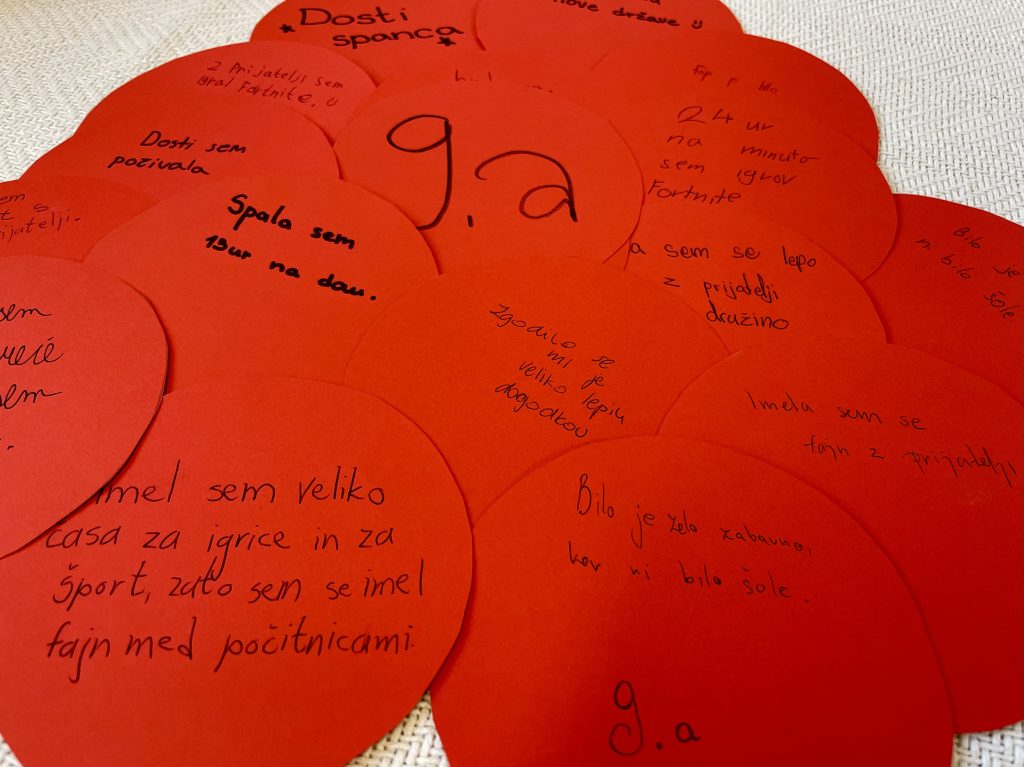 Dosti
spanca
nove države
2 Prijatelji sem
igral Fortnite.
Dosti sem
počivala
9.a
24 ur
na minuto
sem igrov
Fortnite
Spala sem
na dan.
sem se lepo
z prijatelji
družino
Bilo je
ni bilo šole
sem
sem
Zgodilo se
mi je
veliko lepih
dogodkov
Imela sem se
fajn z prijatelji
imel sem veliko
casa za igrice in za
šport, zato sem se imel
fajn med počitnicami.
Bilo je zelo zabavno,
ker ni bilo šole.
9.a